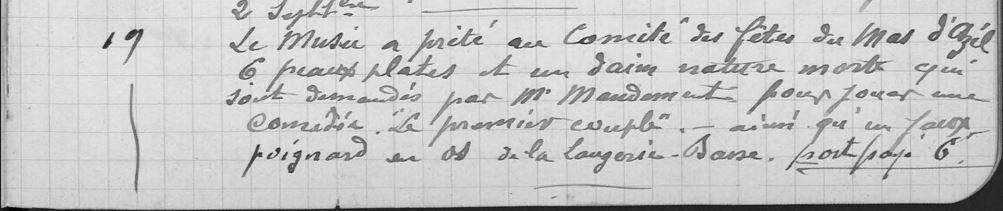 2 Septbre
19 Le Musée a prêté au Comité des fêtes du Mas d'Azil
6 peaux plates et un daim nature morte qui
sont demandés par Mr Mandement pour jouer une
comédie "Le premier couple". - ainsi qu'un faux
poignard en os de la Laugerie-Basse. port payé 6.